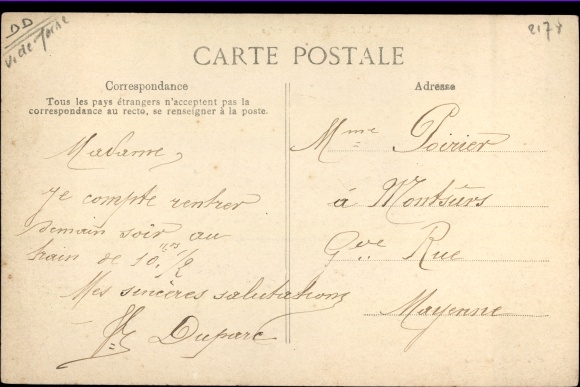 DD
2178
CARTE POSTALE
Correspondance
Tous les pays étrangers n'acceptent pas la
correspondance au recto, se renseigner à la poste.
Madame,
Je compte rentrer
demain soir au
train de 10. 1/2
Mes sincères salutations
Duparc
Adresse
Mme Poirier
à Montsûrs
Gde Rue
Mayenne